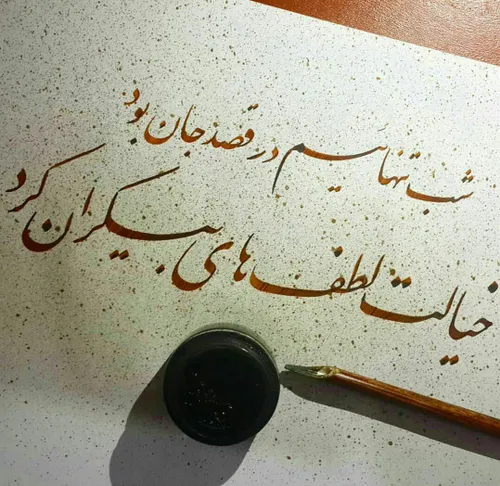 شب تنهاییم در قصد جان بود
خیالت لطف‌های بیکران کرد